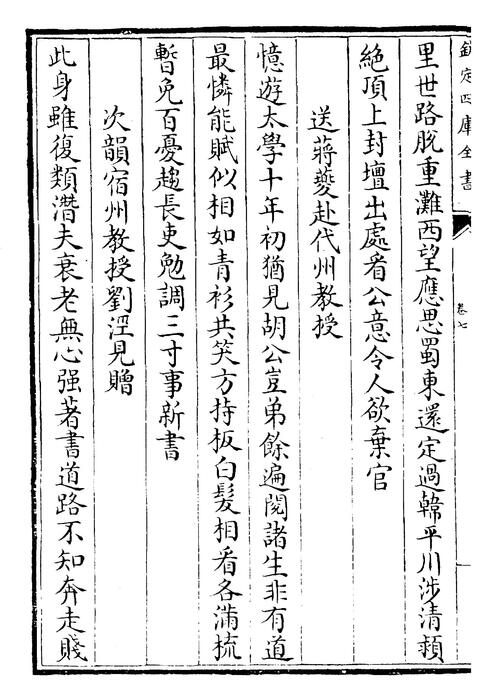 欽定四庫全書
卷七
里世路脫重灘西望應思蜀東還定過韓平川涉清潁
絶頂上封壇出處看公意令人欲棄官
送蔣夔赴代州教授
憶遊太學十年初猶見胡公豈弟餘遍閱諸生非有道
最憐能賦似相如青衫共笑方持板白髮相看各滿梳
暫免百憂趨長吏勉調三寸事新書
次韻宿州教授劉涇見贈
此身雖復類潛夫衰老無心强著書道路不知奔走賤